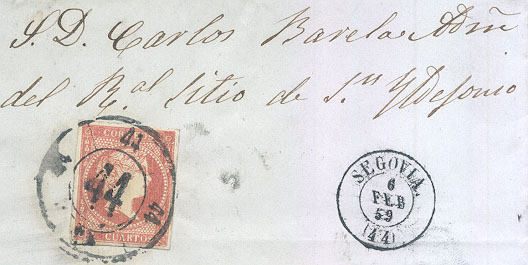 S. D. Carlos Barela Admr
del Rl. al Sitio de Sn Yldefonso
CORREOS
44
41
CUARTO
SEGOVIA
6
FEB
59
(44)